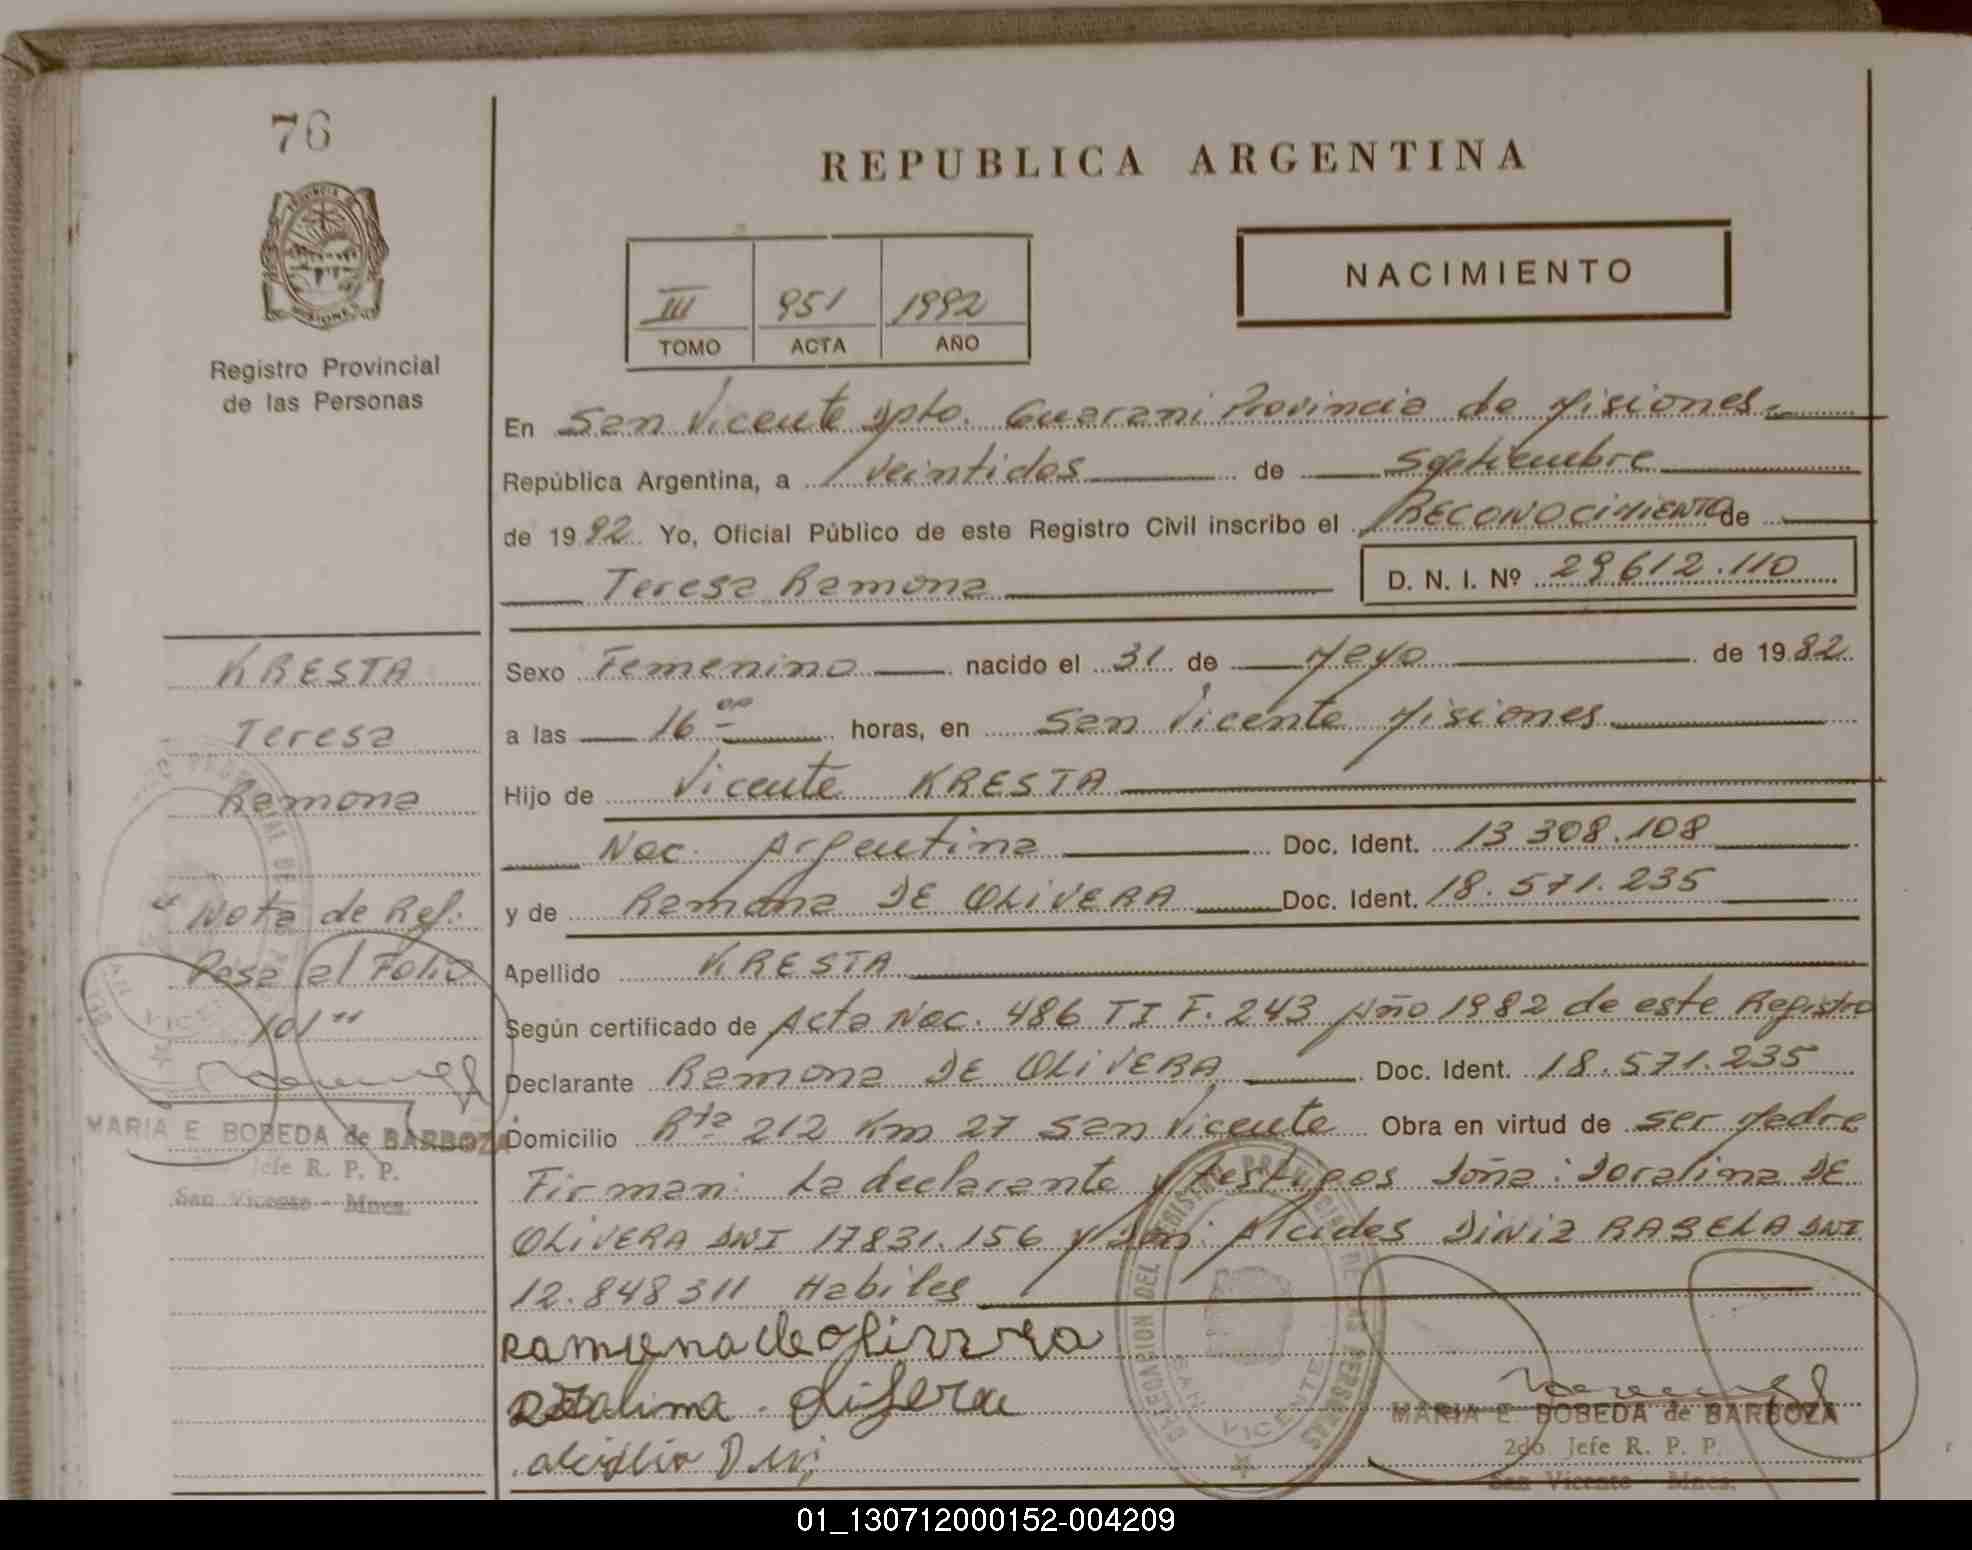 76
REPUBLICA ARGENTINA
NACIMIENTO
III 951 1992
TOMO ACTA AÑO
Registro Provincial
de las Personas
En San Vicente Dpto. Guarani Provincia de Misiones
República Argentina, a veintidos de Septiembre
de 1992 Yo, Oficial Público de este Registro Civil inscribo el RECONOCIMIENTO de
Teresa Ramona D. N. I. Nº 29612.110
KRESTA
Teresa
Ramona
"Nota de Ref.
Pasa al Folio
101"
MARIA E BOBEDA de BARBOZA
Jefe R. P. P.
San Vicente - Mnes.
Sexo Femenino nacido el 31 de Mayo de 1982
a las 16 00 horas, en San Vicente Misiones
Hijo de Vicente KRESTA
Nac. Argentina Doc. Ident. 13 308.108
y de Ramona DE OLIVERA Doc. Ident. 18.571.235
Apellido KRESTA
Según certificado de Acta Nac. 486 TI F. 243 Año 1982 de este Registro
Declarante Ramona DE OLIVERA Doc. Ident. 18.571.235
Domicilio Rta 212 Km 27 San Vicente Obra en virtud de ser Madre
Firman: La declarante y testigos Doña: Doralina DE
OLIVERA DNI 17831.156 y Don: Alcides DINIZ RABELA DNI
12.848311 Habiles
DELEGACION DEL REGISTRO PROVINCIAL DE LAS PERSONAS
SAN VICENTE
MARIA E BOBEDA de BARBOZA
2do. Jefe R. P. P.
San Vicente Mnes.
01_130712000152-004209